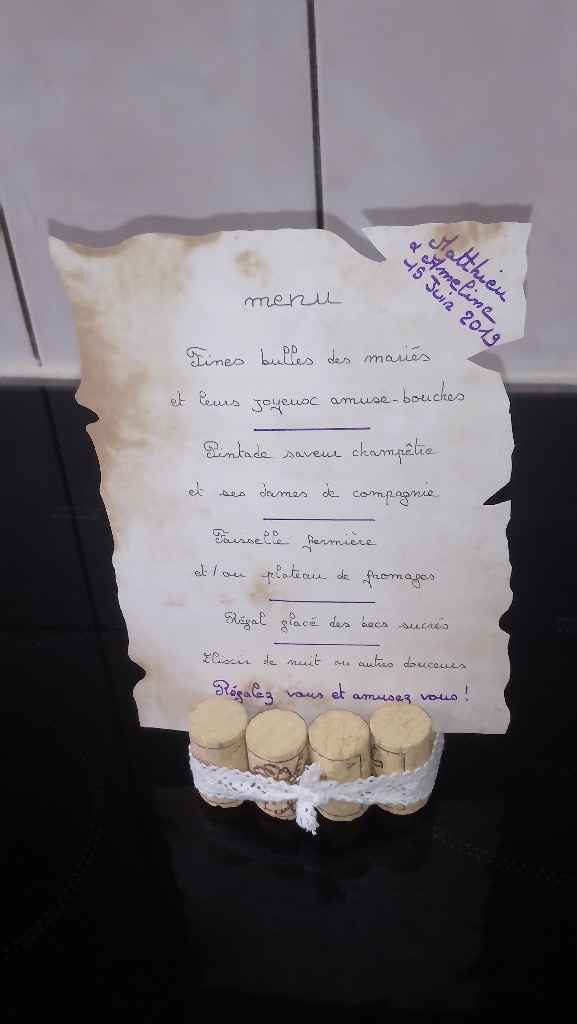 Matthieu
& Ameline
15 Juin 2019
menu
Fines bulles des mariés
et leurs joyeux amuse-bouches
Pintade saveur champêtre
et ses dames de compagnie
Faisselle fermière
et/ou plateau de fromages
Régal glacé des becs sucrés
Elixir de nuit ou autres douceurs
Régalez vous et amusez vous !